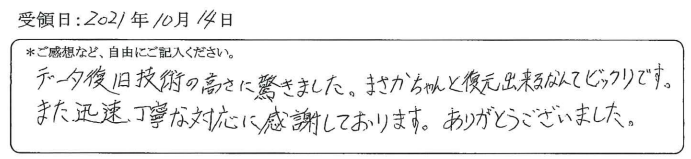 受領日：2021年10月14日
＊ご感想など、自由にご記入ください。
データ復旧技術の高さに驚きました。まさかちゃんと復元出来るなんてビックリです。
また迅速、丁寧な対応に感謝しております。ありがとうございました。